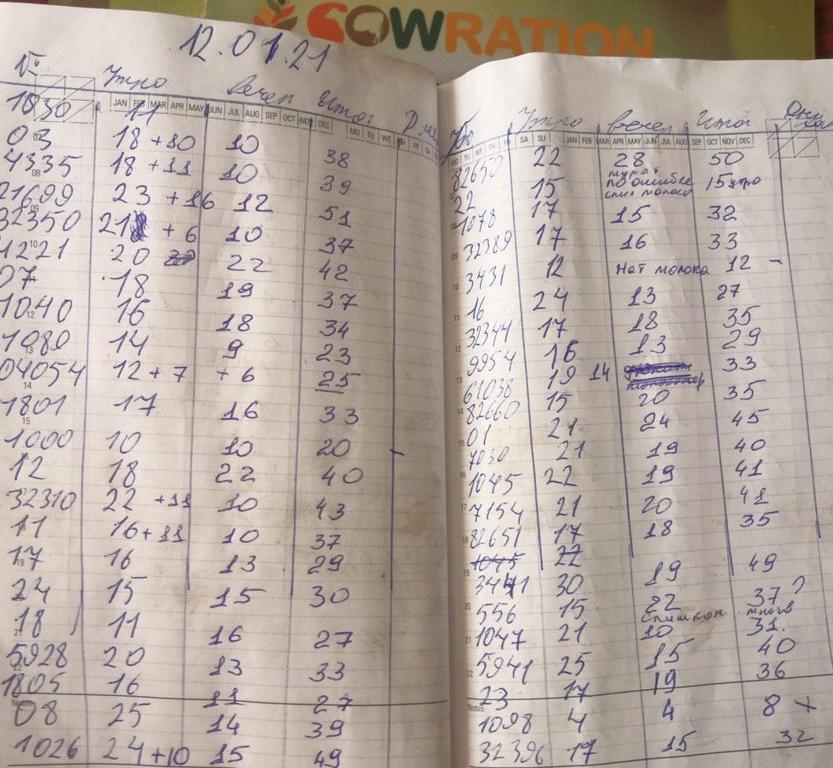 COWRATION
12.01.21
№ Утро Вечер Итог
JAN FEB MAR APR MAY JUN JUL AUG SEP OCT NOV DEC
MO TU WE
1030 11
03 18 +10 10 38
4335 18 +11 10 39
21699 23 +16 12 51
32350 21 +6 10 37
1221 20 22 42
07 18 19 37
1040 16 18 34
1080 14 9 23
04054 12 +7 +6 25
1801 17 16 33
1000 10 10 20 -
12 18 22 40
32310 22 +11 10 43
11 16 +11 10 37
17 16 13 29
24 15 15 30
18 11 16 27
5928 20 13 33
1805 16 11 27
08 25 14 39
1026 24 +10 15 49
Утро вечер Итог
MO TU WE TH FR SA SU JAN FEB MAR APR MAY JUN JUL AUG SEP OCT NOV DEC
82650 22 28 50
22 15 по ошибке 15 утро
1078 17 15 32
32389 17 16 33
3431 12 Нет молока 12 -
16 24 13 27
32344 17 18 35
9954 16 13 29
61038 19 14 33
82660 15 20 35
01 21 24 45
7030 21 19 40
1045 22 19 41
7154 21 20 41
82651 17 18 35
1045 22
3441 30 19 49
556 15 22 37 ?
слишком много
1047 21 10 31.
5941 25 15 40
23 17 19 36
Notes
1098 4 4 8 +
32396 17 15 32